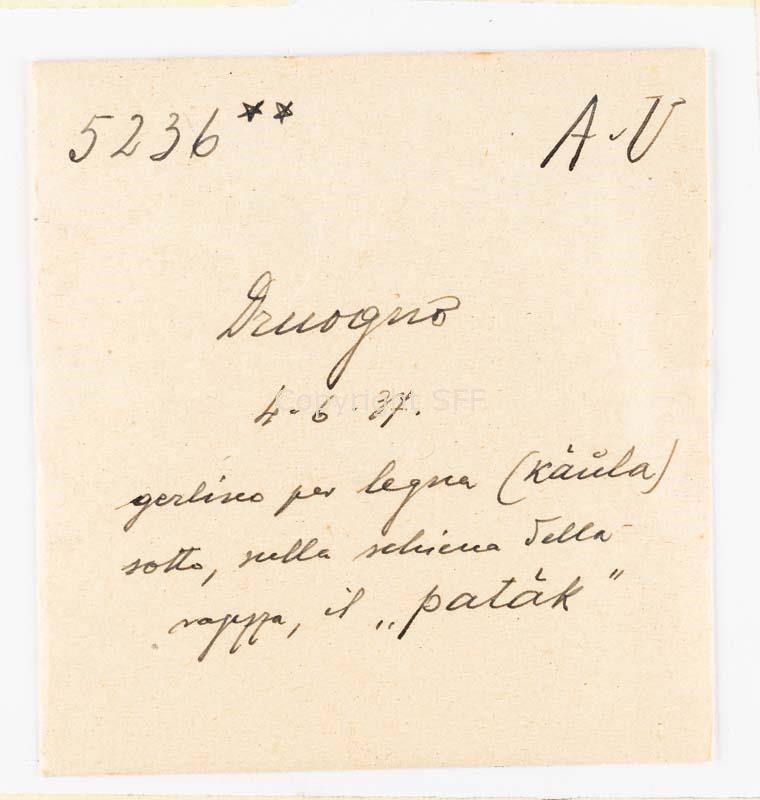 5236** A-V
Druogno
4-6-37.
Copyright SFF
gerlino per legna (kàůla)
sotto, sulla schiena della
ragazza, il „paták"